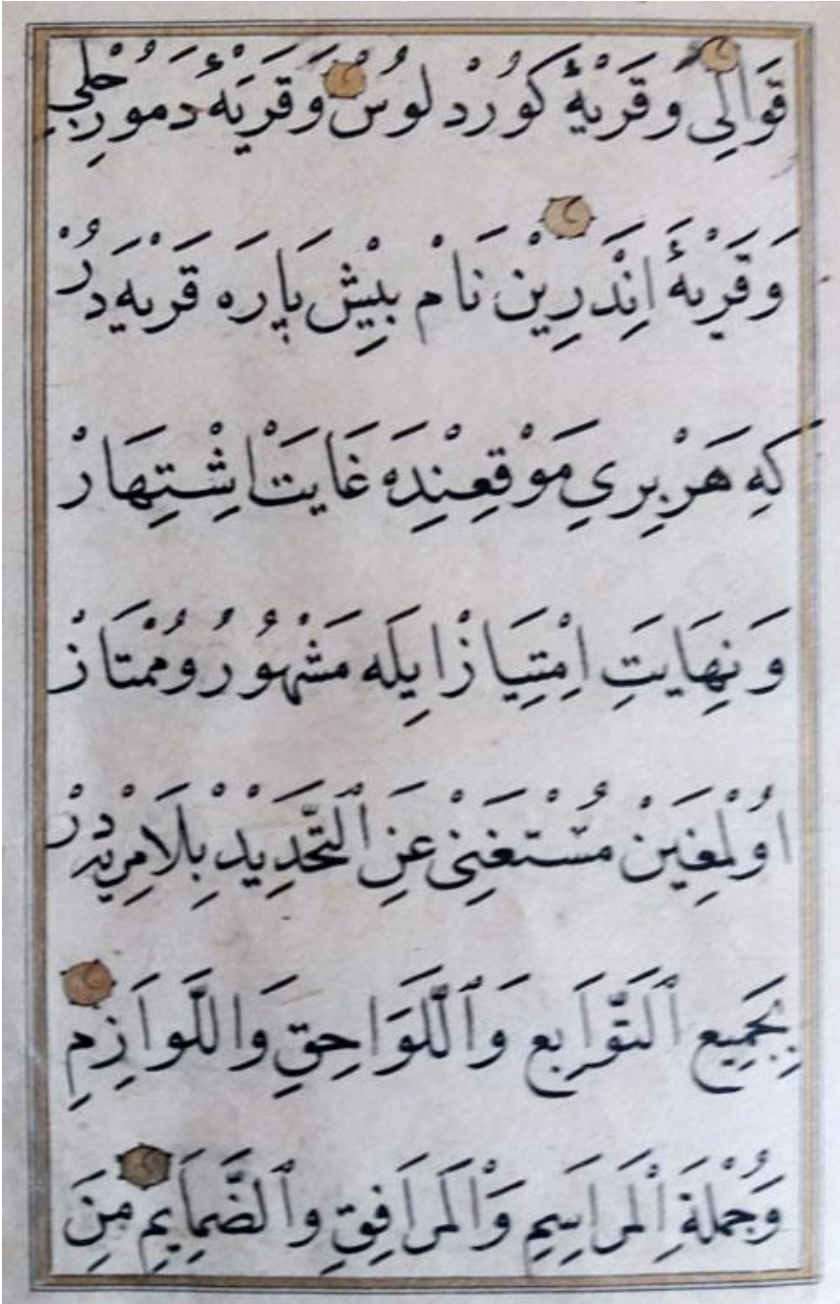 قَوَالِی وَقَرْیَهٔ كُورْدلُوسْ وَقَرْیَهٔ دَمُورْجِلِی
وَقَرْیَهٔ اِنْدَرِینْ نَامْ بِیشْ پَارَه قَرْیَه دُرْ
كِه هَرْ بِرِی مَوْقِعِنْدَه غَایَتْ اِشْتِهَارْ
وَنِهَایَتِ اِمْتِیَازْ اِیلَه مَشْهُورُ وُمْمتَازْ
اُولْمَغِینْ مُسْتَغْنِیْ عَنِ ٱلتَّحْدِیدْ بِلَامِرْیَه دُرْ
بِجَمِیعِ ٱلتَّوَابِعِ وَٱللَّوَاحِقِ وَاللَّوَازِمِ
وَجُمْلَةِ اْلمَرَاسِمِ وَاْلمَرَافِقِ وَٱلضَّمَایِمِ مِنَ